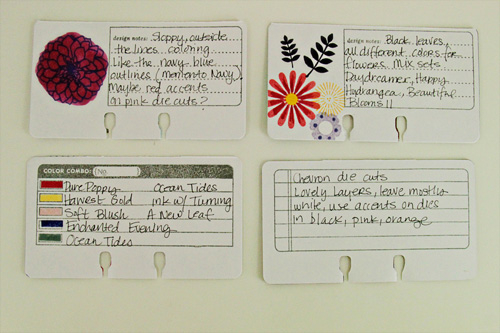 design notes: Sloppy, outside
the lines coloring
Like the navy blue
outlines (memento Navy).
Maybe red accents
on pink die cuts?
design notes: Black leaves,
all different colors for
flowers. Mix sets
Daydreamer, Happy
Hydrangea, Beautiful
Blooms II
COLOR COMBO: No
Pure Poppy Ocean Tides
Harvest Gold ink w/ Turning
Soft Blush A New Leaf
Enchanted Evening
Ocean Tides
Chevron die cuts
Lovely Layers, leave mostly
white, use accents on dies
in black, pink, orange